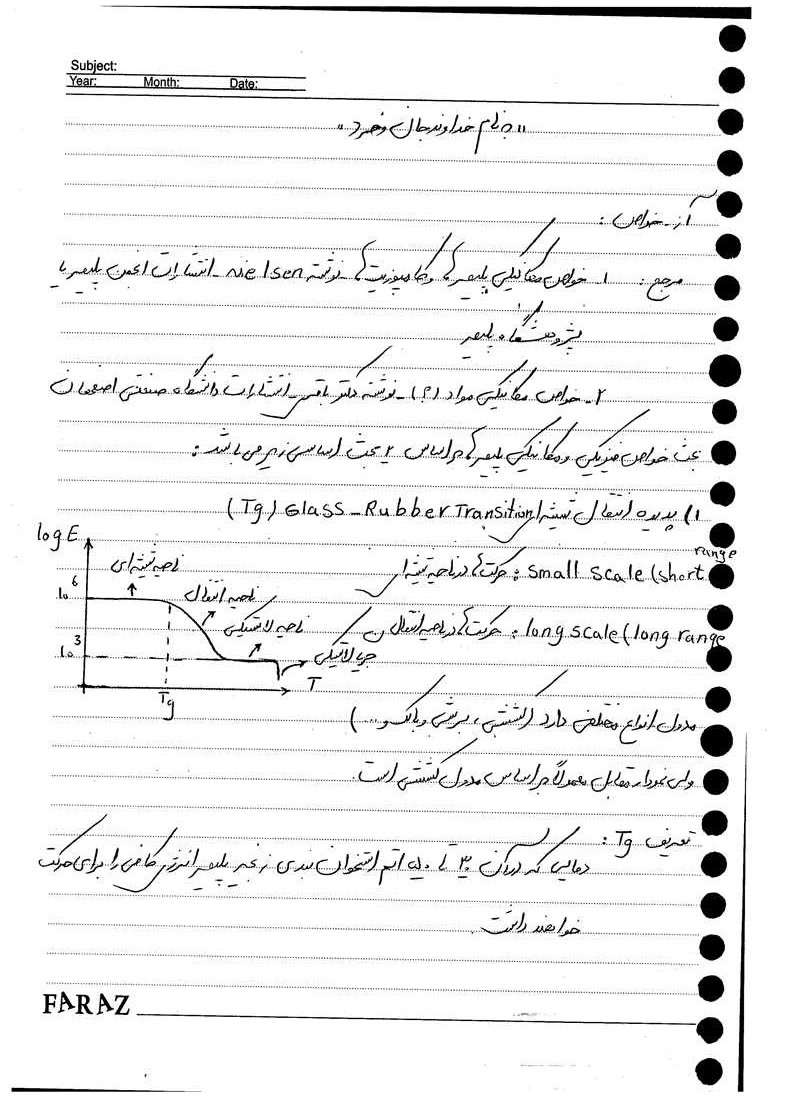 Subject:
Year: Month: Date:
"بنام خداوند جان و خرد"
آز - خواص :
مرجع : ۱. خواص مکانیکی پلیمرها و کامپوزیت‌ها - نوشته Nielsen - انتشارات انجمن پلیمر یا
پژوهشگاه پلیمر
۲. خواص مکانیکی مواد (۲) - نوشته دکتر - انتشارات دانشگاه صنعتی اصفهان
بحث خواص فیزیکی و مکانیکی پلیمرها بر اساس ۲ بحث اساسی زیر می باشد :
۱) پدیده انتقال شیشه‌ای Glass - Rubber Transition (Tg)
small scale (short range : حرکت‌ها در ناحیه شیشه‌ای
long scale (long range : حرکت‌ها در ناحیه انتقال
log E
ناحیه شیشه ای
10^6
ناحیه انتقال
ناحیه لاستیکی
10^3
جریان لاستیکی
Tg
T
مدول انواع مختلفی دارد (کششی، برشی و بالک و ....)
ولی نمودار مقابل معمولاً بر اساس مدول کششی است.
تعریف Tg :
دمایی که در آن ۳۰ تا ۵۰ اتم استخوان بندی زنجیر پلیمر انرژی کافی را برای حرکت
خواهند داشت.
FARAZ